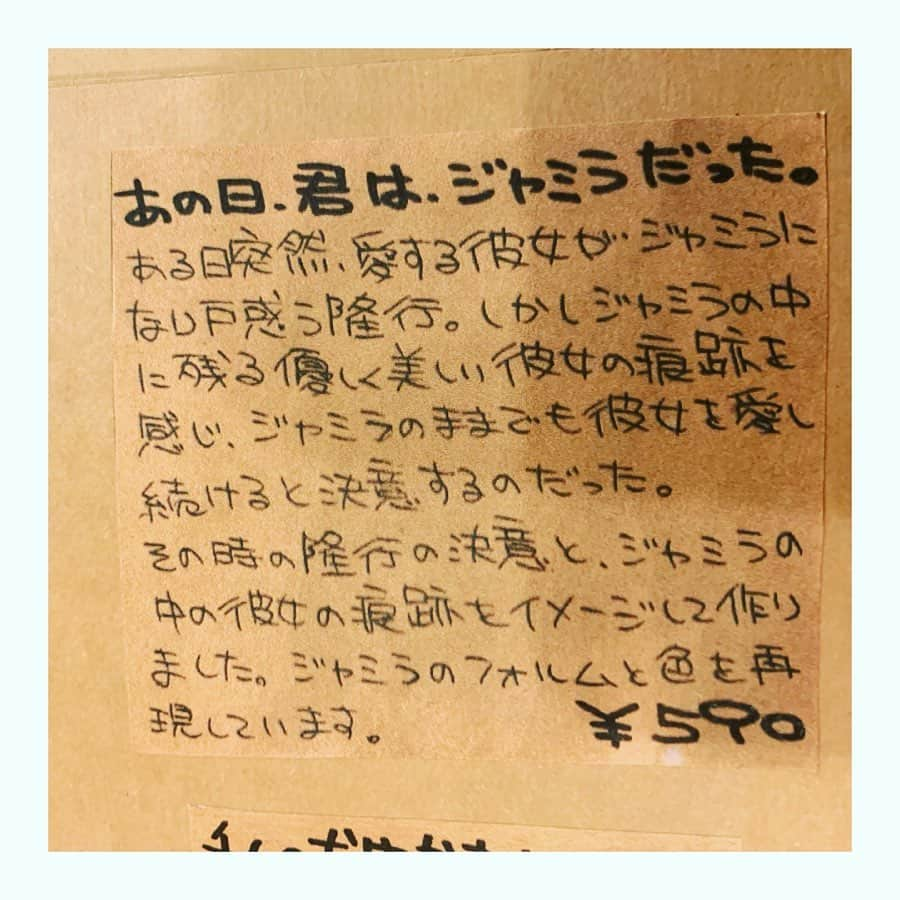 あの日、君は、ジャミラだった。
ある日突然、愛する彼女が、ジャミラに
なり戸惑う隆行。しかしジャミラの中
に残る優しく美しい彼女の痕跡を
感じ、ジャミラのままでも彼女を愛し
続けると決意するのだった。
その時の隆行の決意と、ジャミラの
中の彼女の痕跡をイメージして作り
ました。ジャミラのフォルムと色を再
現しています。
¥590